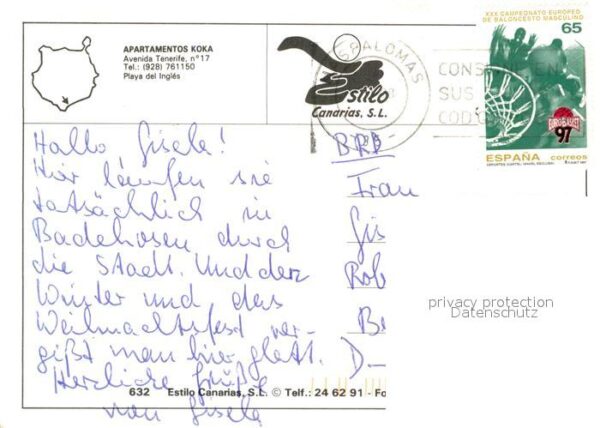 APARTAMENTOS KOKA
Avenida Tenerife, n.º 17
Tel.: (928) 761150
Playa del Inglés
Estilo
Canarias, S.L.
SPALOMAS
CONS
SUS
COD
XXX CAMPEONATO EUROPEO
DE BALONCESTO MASCULINO
65
EUROBASKET
97
ESPAÑA correos
Hallo Gisela!
Hier laufen sie
tatsächlich in
Badehosen durch
die Stadt. Und der
Winter und das
Weihnachtsfest ver-
gißt man hier glatt.
Herzliche Grüße
von Gisela
BRD
Frau
Gis
Rob
D-
privacy protection
Datenschutz
632 Estilo Canarias, S.L. © Telf.: 24 62 91 - Fo